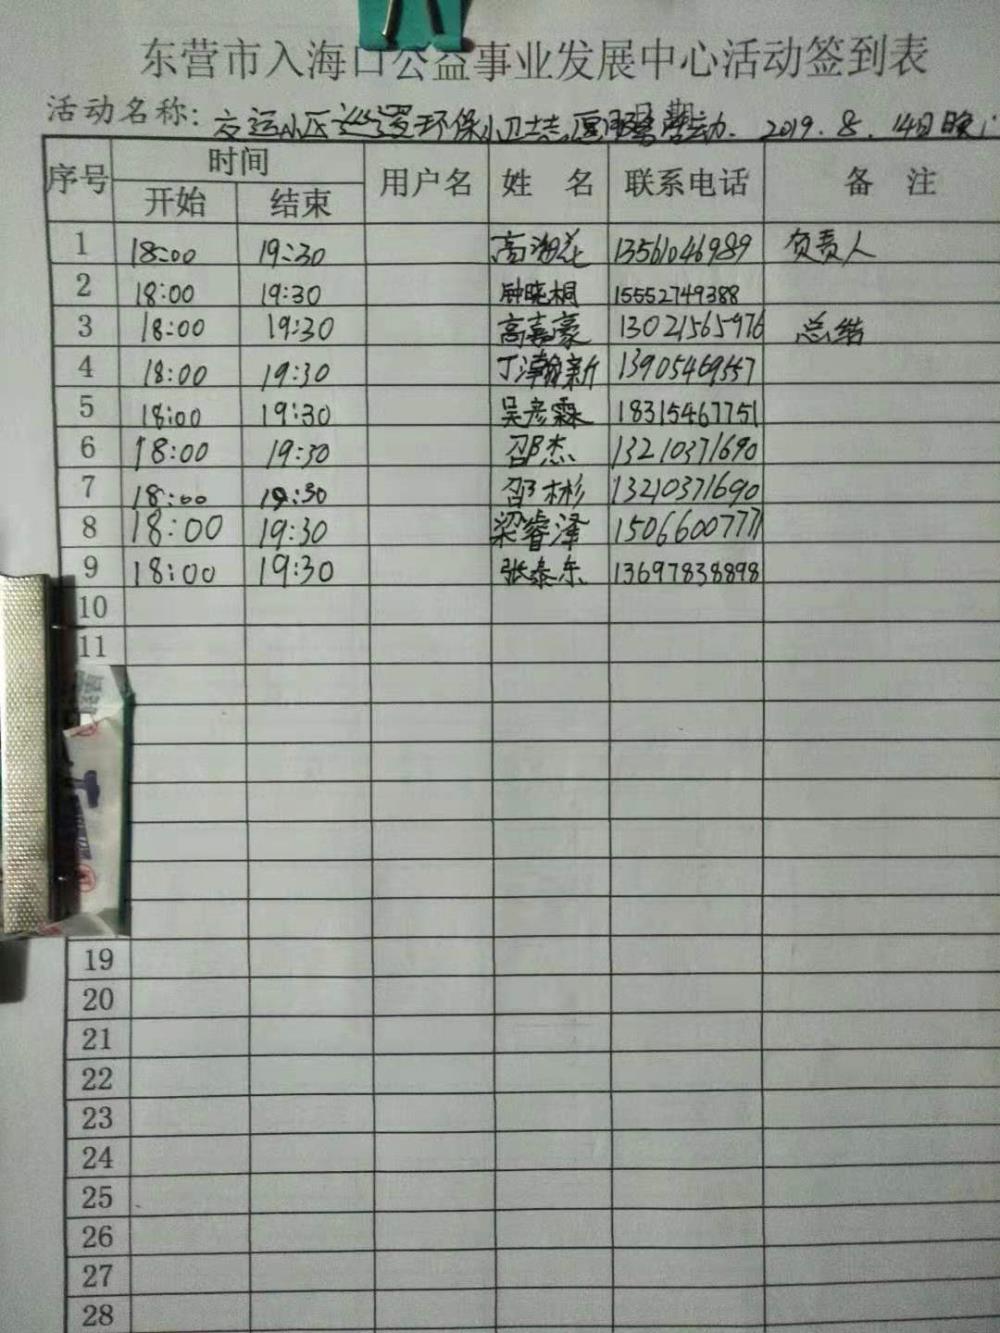 东营市入海口公益事业发展中心活动签到表
活动名称: 交运小区 环保小卫士志愿 活动. 日期 2019.8.14日晚
序号 时间 用户名 姓 名 联系电话 备 注
开始 结束
1 18:00 19:30 高淑花 13561046989 负责人
2 18:00 19:30 钟晓桐 15552749388
3 18:00 19:30 高嘉豪 13021565976 总结
4 18:00 19:30 丁瀚新 13905469557
5 18:00 19:30 吴彦霖 18315467751
6 18:00 19:30 邵杰 13210371690
7 18:00 19:30 邵彬 13210371690
8 18:00 19:30 梁睿泽 15066007771
9 18:00 19:30 张泰东 13697838898
10
11
19
20
21
22
23
24
25
26
27
28